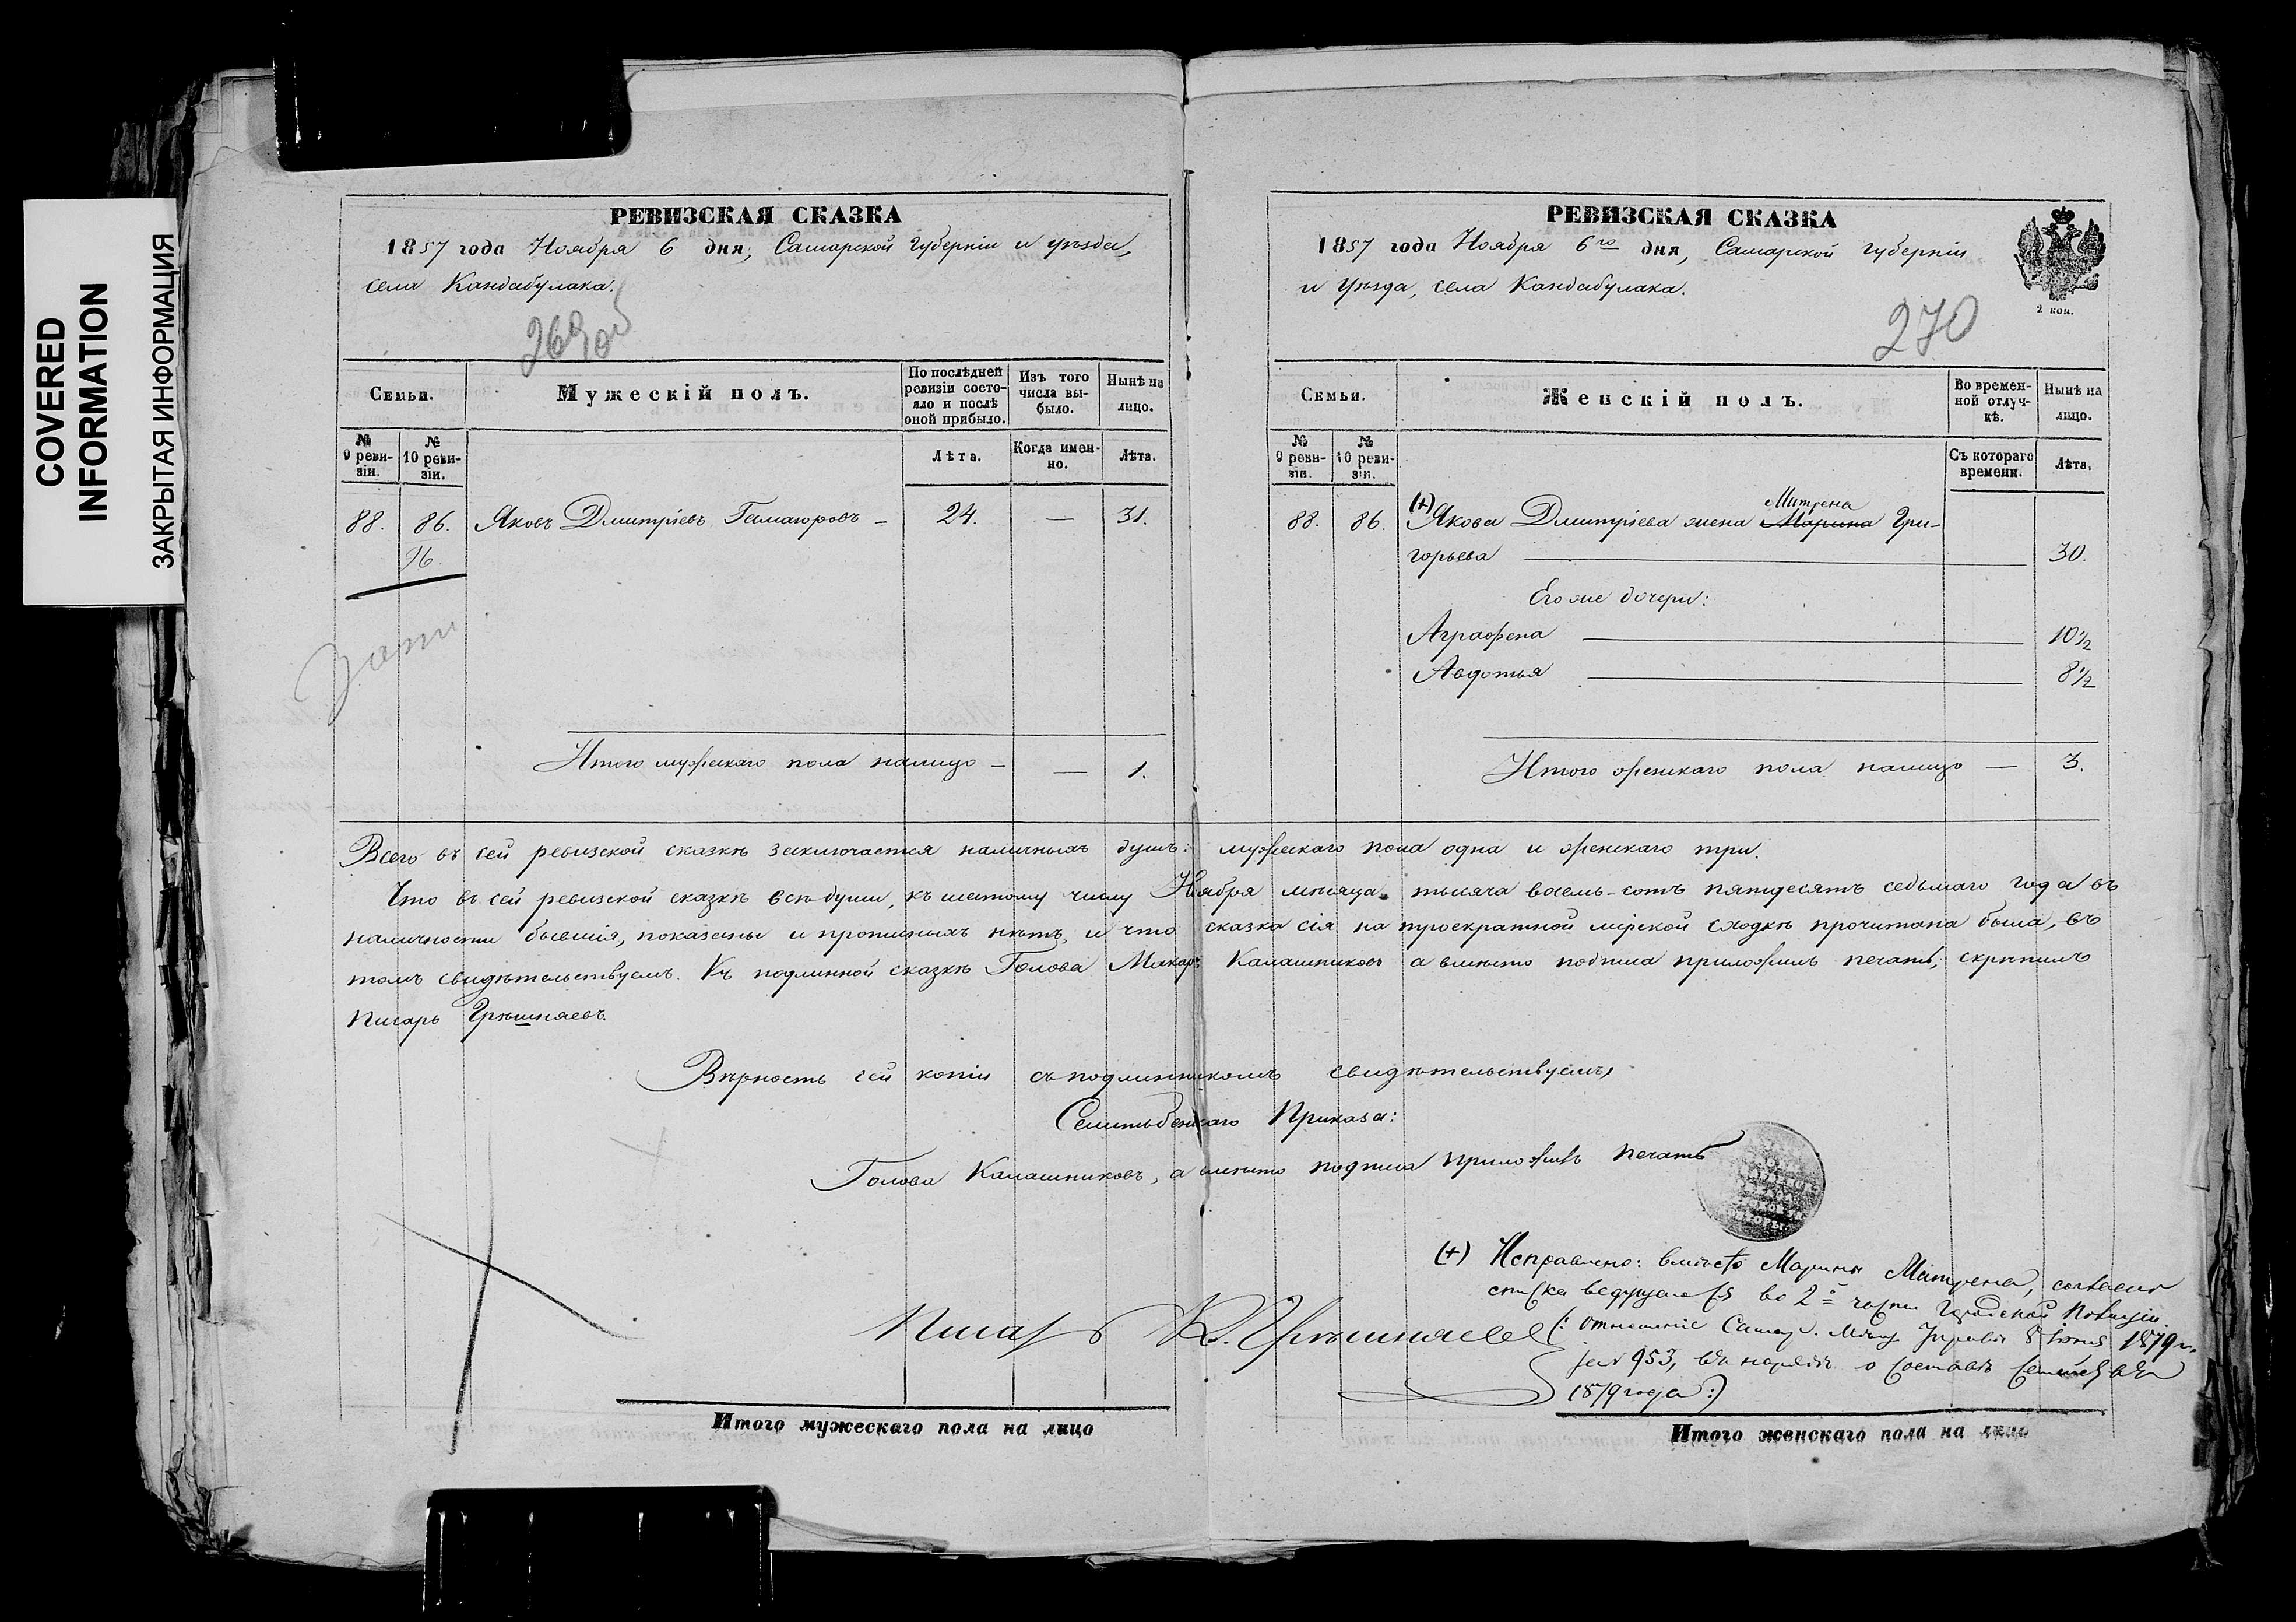 COVERED
INFORMATION
ЗАКРЫТАЯ ИНФОРМАЦИЯ
РЕВИЗСКАЯ СКАЗКА
1857 года Ноября 6 дня, Самарской Губерніи и уѣзда,
села Кандабулака.
269об
Семьи.
Мужескій полъ.
По послѣдней ревизіи состо-
яло и послѣ
оной прибыло.
Изъ того
числа вы-
было.
Нынѣ на
лицо.
№
9 реви-
зіи.
№
10 реви-
зіи.
Лѣта.
Когда имен-
но.
Лѣта.
88. 86. Яковъ Дмитріевъ — 24. — 31.
96.
Итого мужескаго пола налицо — — 1.
РЕВИЗСКАЯ СКАЗКА
1857 года Ноября 6го дня, Самарской губерніи
и Уѣзда, села Кандабулака.
2 коп.
270
Семьи.
Женскій полъ.
Во времен-
ной отлуч-
кѣ.
Нынѣ на
лицо.
№
9 реви-
зіи.
№
10 реви-
зіи.
Съ котораго
времени.
Лѣта.
Матрена
88. 86. (+) Якова Дмитріева жена Марина Гри-
горьева 30.
Его же дочери:
Аграфена 10½
Авдотья 8½
Итого женскаго пола налицо — 3.
Всего въ сей ревизской сказкѣ заключается наличныхъ душъ: мужескаго пола одна и женскаго три.
Что въ сей ревизской сказкѣ всѣ души, къ шестому числу Ноября мѣсяца тысяча восемь-сотъ пятдесятъ седьмаго года въ
наличности бывшія, показаны и прописныхъ нѣтъ, и что сказка сія на троекратной мірской сходкѣ прочитана была, въ
томъ свидѣтельствуемъ. Къ подлинной сказкѣ Голова Макаръ Калашниковъ а вмѣсто подписа приложилъ печать, скрѣпилъ
Писарь Грѣшняевъ.
Вѣрность сей копіи съ подлинникомъ свидѣтельствуемъ,
Приказа:
Голова Калашниковъ, а вмѣсто подписа приложилъ печать
(+) Исправлено: вмѣсто Марины Матрена, согласно
списка во 2й части Городской Полиціи.
(: отношеніе Самар. Мѣщ. Управы 8 Іюня 1879 г.
за № 953, въ нарядѣ о составѣ
1879 года:)
Писарь К. Грѣшняевъ
Итого мужескаго пола на лицо
Итого женскаго пола на лицо